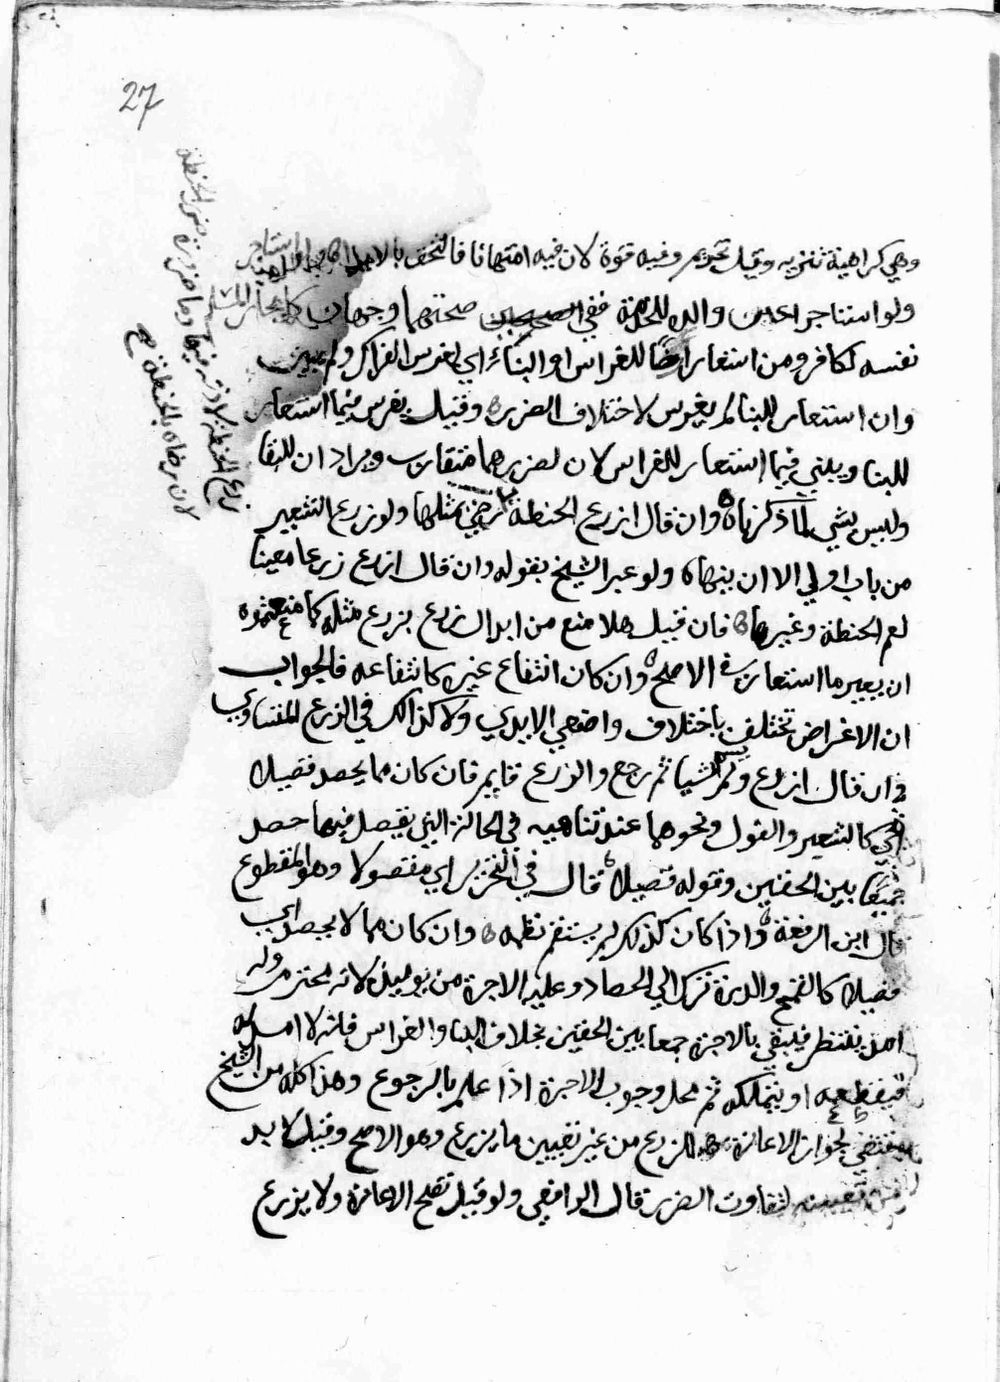 27
وهي كراهية تنزيه وقيل تحريم وفيه قوة لان فيه امتهانا فالتحق بالاجارة
ولو استاجر احد والديه للخدمة ففي صحتهما وجهان كايجار المسلم
نفسه لكافر ومن استعار ارضا للغراس او البناء اي لغرس الفراك ولم يبين
وان استعار للبنا لم يغرس لاختلاف الضرر وقيل يغرس فيما استعار
للبنا ويبني فيما استعار للغراس لان ضررهما متقارب ويراد ان للبقا
وليس بشي لما ذكرناه وان قال ازرع الحنطة رضي بمثلها ولو زرع الشعير
من باب اولي الا ان ينهاه ولو عبر الشيخ بقوله وان قال ازرع زرعا معينا
لعم الحنطة وغيرها فان قيل هلا منع من ابدال زرع بزرع مثله كما منعتموه
ان يعير ما استعار في الاصح وان كان انتفاع غيره كانتفاعه فالجواب
ان الاغراض تختلف باختلاف واضعي الايدي ولا كذالك في الزرع المتساوي
وان قال ازرع ولم يسم شيا ثم رجع والزرع قايم فان كان مما يحصد قصيلا
اي كالشعير والفول ونحوهما عند تناهيه في الحالة التي يقصل فيها حصد
جمعا بين الحقين وقوله قصيلا قال في التحرير اي مقصولا وهو المقطوع
قال ابن الرفعة واذا كان كذلك لم يستقم نظمه وان كان مما لا يحصد اي
قصيلا كالقمح والذرة ترك الي الحصاد وعليه الاجرة من يوميذ لانه محترم وله
امد ينتظر فيبقي بالاجرة جمعا بين الحقين بخلاف البنا والغراس فانه لا امد له
فيقطعه او يتملكه ثم محل وجوب الاجرة اذا علم بالرجوع وهذا كله من الشيخ
يقتضي لجواز الاعارة للزرع من غير تعيين ما يزرع وهو الاصح وقيل لا بد
من تعيينه لتفاوت الضرر قال الرافعي ولو قيل تصح الاعارة ولا يزرع
زرع الحنطة لاذنه فيها وما ضرره ضرر الحنطة
لان رضاه بالحنطة صح